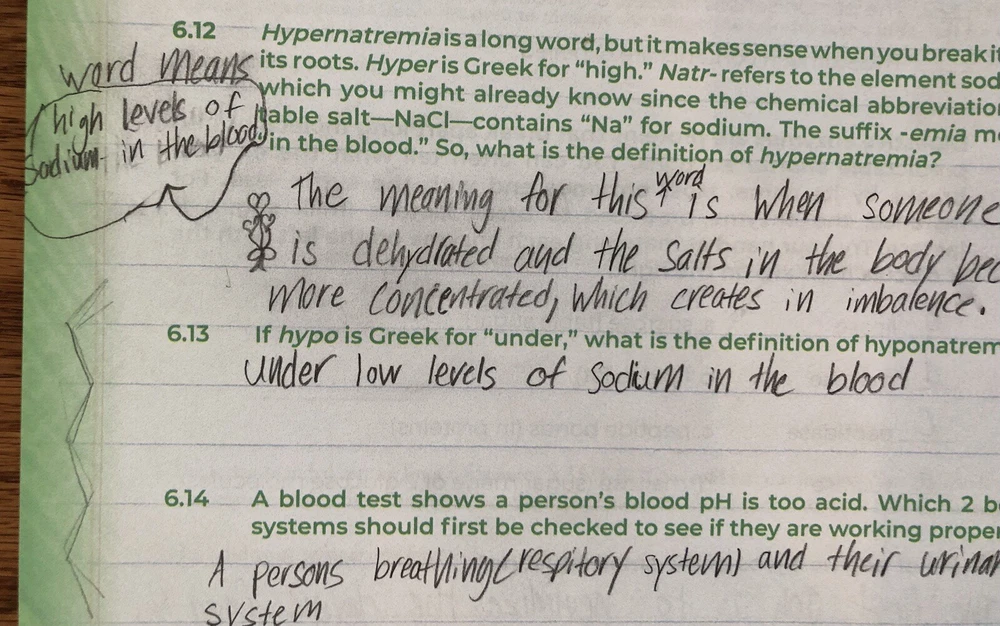 6.12 Hypernatremia is a long word, but it makes sense when you break it
its roots. Hyper is Greek for "high." Natr- refers to the element sod
which you might already know since the chemical abbreviatio
table salt—NaCl—contains "Na" for sodium. The suffix -emia m
in the blood." So, what is the definition of hypernatremia?
word means
high levels of
Sodium in the blood
The meaning for this word is when someone
is dehydrated and the salts in the body bec
more concentrated, which creates in imbalence.
6.13 If hypo is Greek for "under," what is the definition of hyponatrem
under low levels of sodium in the blood
6.14 A blood test shows a person's blood pH is too acid. Which 2 b
systems should first be checked to see if they are working proper
A persons breathing (respitory system) and their urinar
system